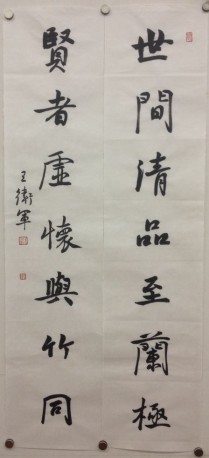 世間清品至蘭極
賢者虛懷與竹同
王衛軍